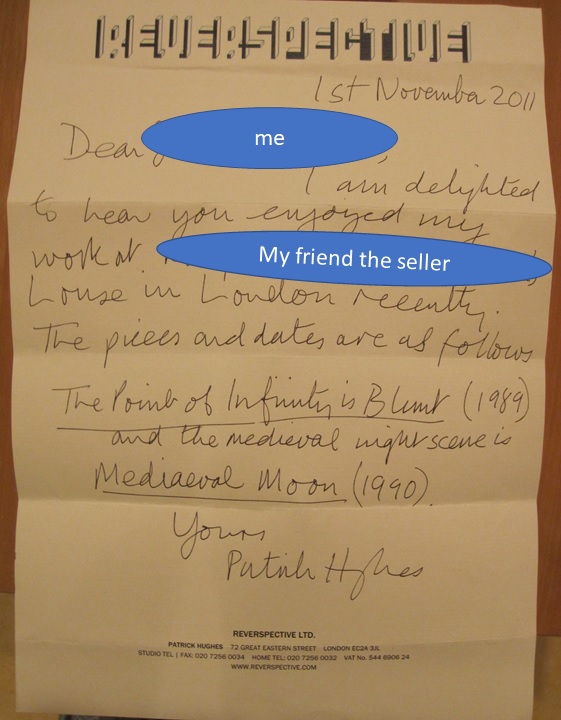 REVERSPECTIVE
1st November 2011
Dear
me
I am delighted
to hear you enjoyed my
work at
My friend the seller
house in London recently.
The pieces and dates are as follows
The Point of Infinity is Blunt (1989)
and the medieval night scene is
Mediaeval Moon (1990)
Yours
Patrick Hughes
REVERSPECTIVE LTD.
PATRICK HUGHES 72 GREAT EASTERN STREET LONDON EC2A 3JL
STUDIO TEL | FAX: 020 7256 0034 HOME TEL: 020 7256 0032 VAT No. 544 6906 24
WWW.REVERSPECTIVE.COM